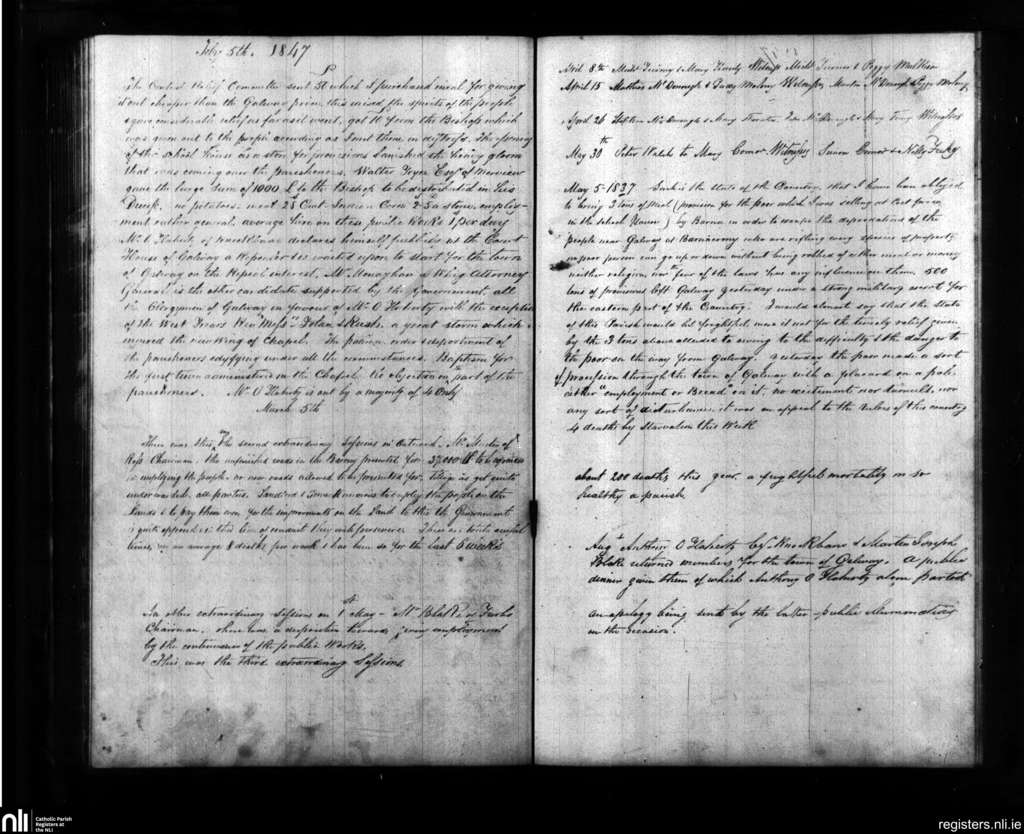 Feby 5th. 1847
The Central Relief Committee sent 50 £ which I purchased meal for giving
it out cheaper than the Galway price, this raised the spirits of the people
& gave considerable relief as far as it went, got 10 from the Bishop which
was given out to the people according as I met them in distress. The opening
of the School House as a store for provisions banished the living gloom
that was coming over the parishioners. Walter Joyce Esqr of Merview
gave the large sum of 1000 £ to the Bishop to be distributed in this
no potatoes. meat Cwt Indian Corn 2-5 a stone, employ-
ment rather general, average hire on these public works 1s per day
Mr O Flaherty of declares himself publicly at the Court
House of Galway a Repealer & is waited upon to start for the town
of Galway on the Repeal interest. Mr Monaghan a Whig Attorney
General is the other candidate supported by the Government, all
the Clergymen of Galway in favour of Mr O Flaherty with the exception
of the West Friars Revd Messrs Folan & Rush. a great storm which in-
jured the new wing of Chapel. The patience order & deportment of
the parishioners edifying under all the circumstances. Baptism for
the first time administered in the Chapel. No objection on part of the
parishioners. Mr O Flaherty is out by a majority of 4 Only
March 5th
There was this day the second extraordinary Sessions in Mr
Ross Chairman. The unfinished roads in the Barony presented for 37,000 £ to be expended
in employing the people. no new roads allowed to be presented for. Tillage is yet quite
under all parties. Landlord & Tenant unwilling to employ the people on the
lands & to pay them even for the improvements on the Land to this the Government
is quite opposed
times, on an average 8 deaths per week & has been so for the last 6 weeks
In other extraordinary Sessions on 1st May - Mr Blake of Furbo
Chairman. there was a disposition towards giving employment
by the continuance of the public works.
This was the third extraordinary Sessions
April 8th Michl Tierney & Mary Witness Michl & Peggy
April 15 Mathias McDonough & Mulvey Witnesses Martin McDonough & Peggy Mulvey
April 28 McDonough & Mary McDonough & Mary Witnesses
May 30th Peter Walsh to Mary Conor Witnesses Conor & Kelly
May 5 - 1837 Such is the state of the Country, that I have been obliged
to bring 3 tons of Meal (provision for the poor which I was selling at cost price
in the School House) by Barna in order to escape the depredations of the
people near Galway at who are rifling every species of property
no poor person can go up or down without being robbed of either meal or money
neither religion nor fear of the laws have any influence on them, 500
tons of provisions left Galway yesterday under a strong military escort for
the eastern part of the Country. I would almost say that the state
of this Parish would be frightful, were it not for the timely relief given
by the 3 tons above alluded to owing to the difficulty & the danger to
the poor on the way from Galway. Yesterday the poor made a sort
of procession through the town of Galway with a placard on a pole
either "employment or Bread" on it, no excitement nor tumult, nor
any sort of disturbance, it was an appeal to the rulers of this country
4 deaths by starvation this Week
about 200 deaths this year, a frightful mortality in so
healthy a parish
Augt Anthony O Flaherty Esqr Knockbane & Martin Joseph
Blake returned members for the town of Galway. A public
dinner given them of which Anthony O Flaherty alone partook
an apology being sent by the latter public illuminations
on the occasion.
nli
Catholic Parish
Registers at
the NLI
registers.nli.ie